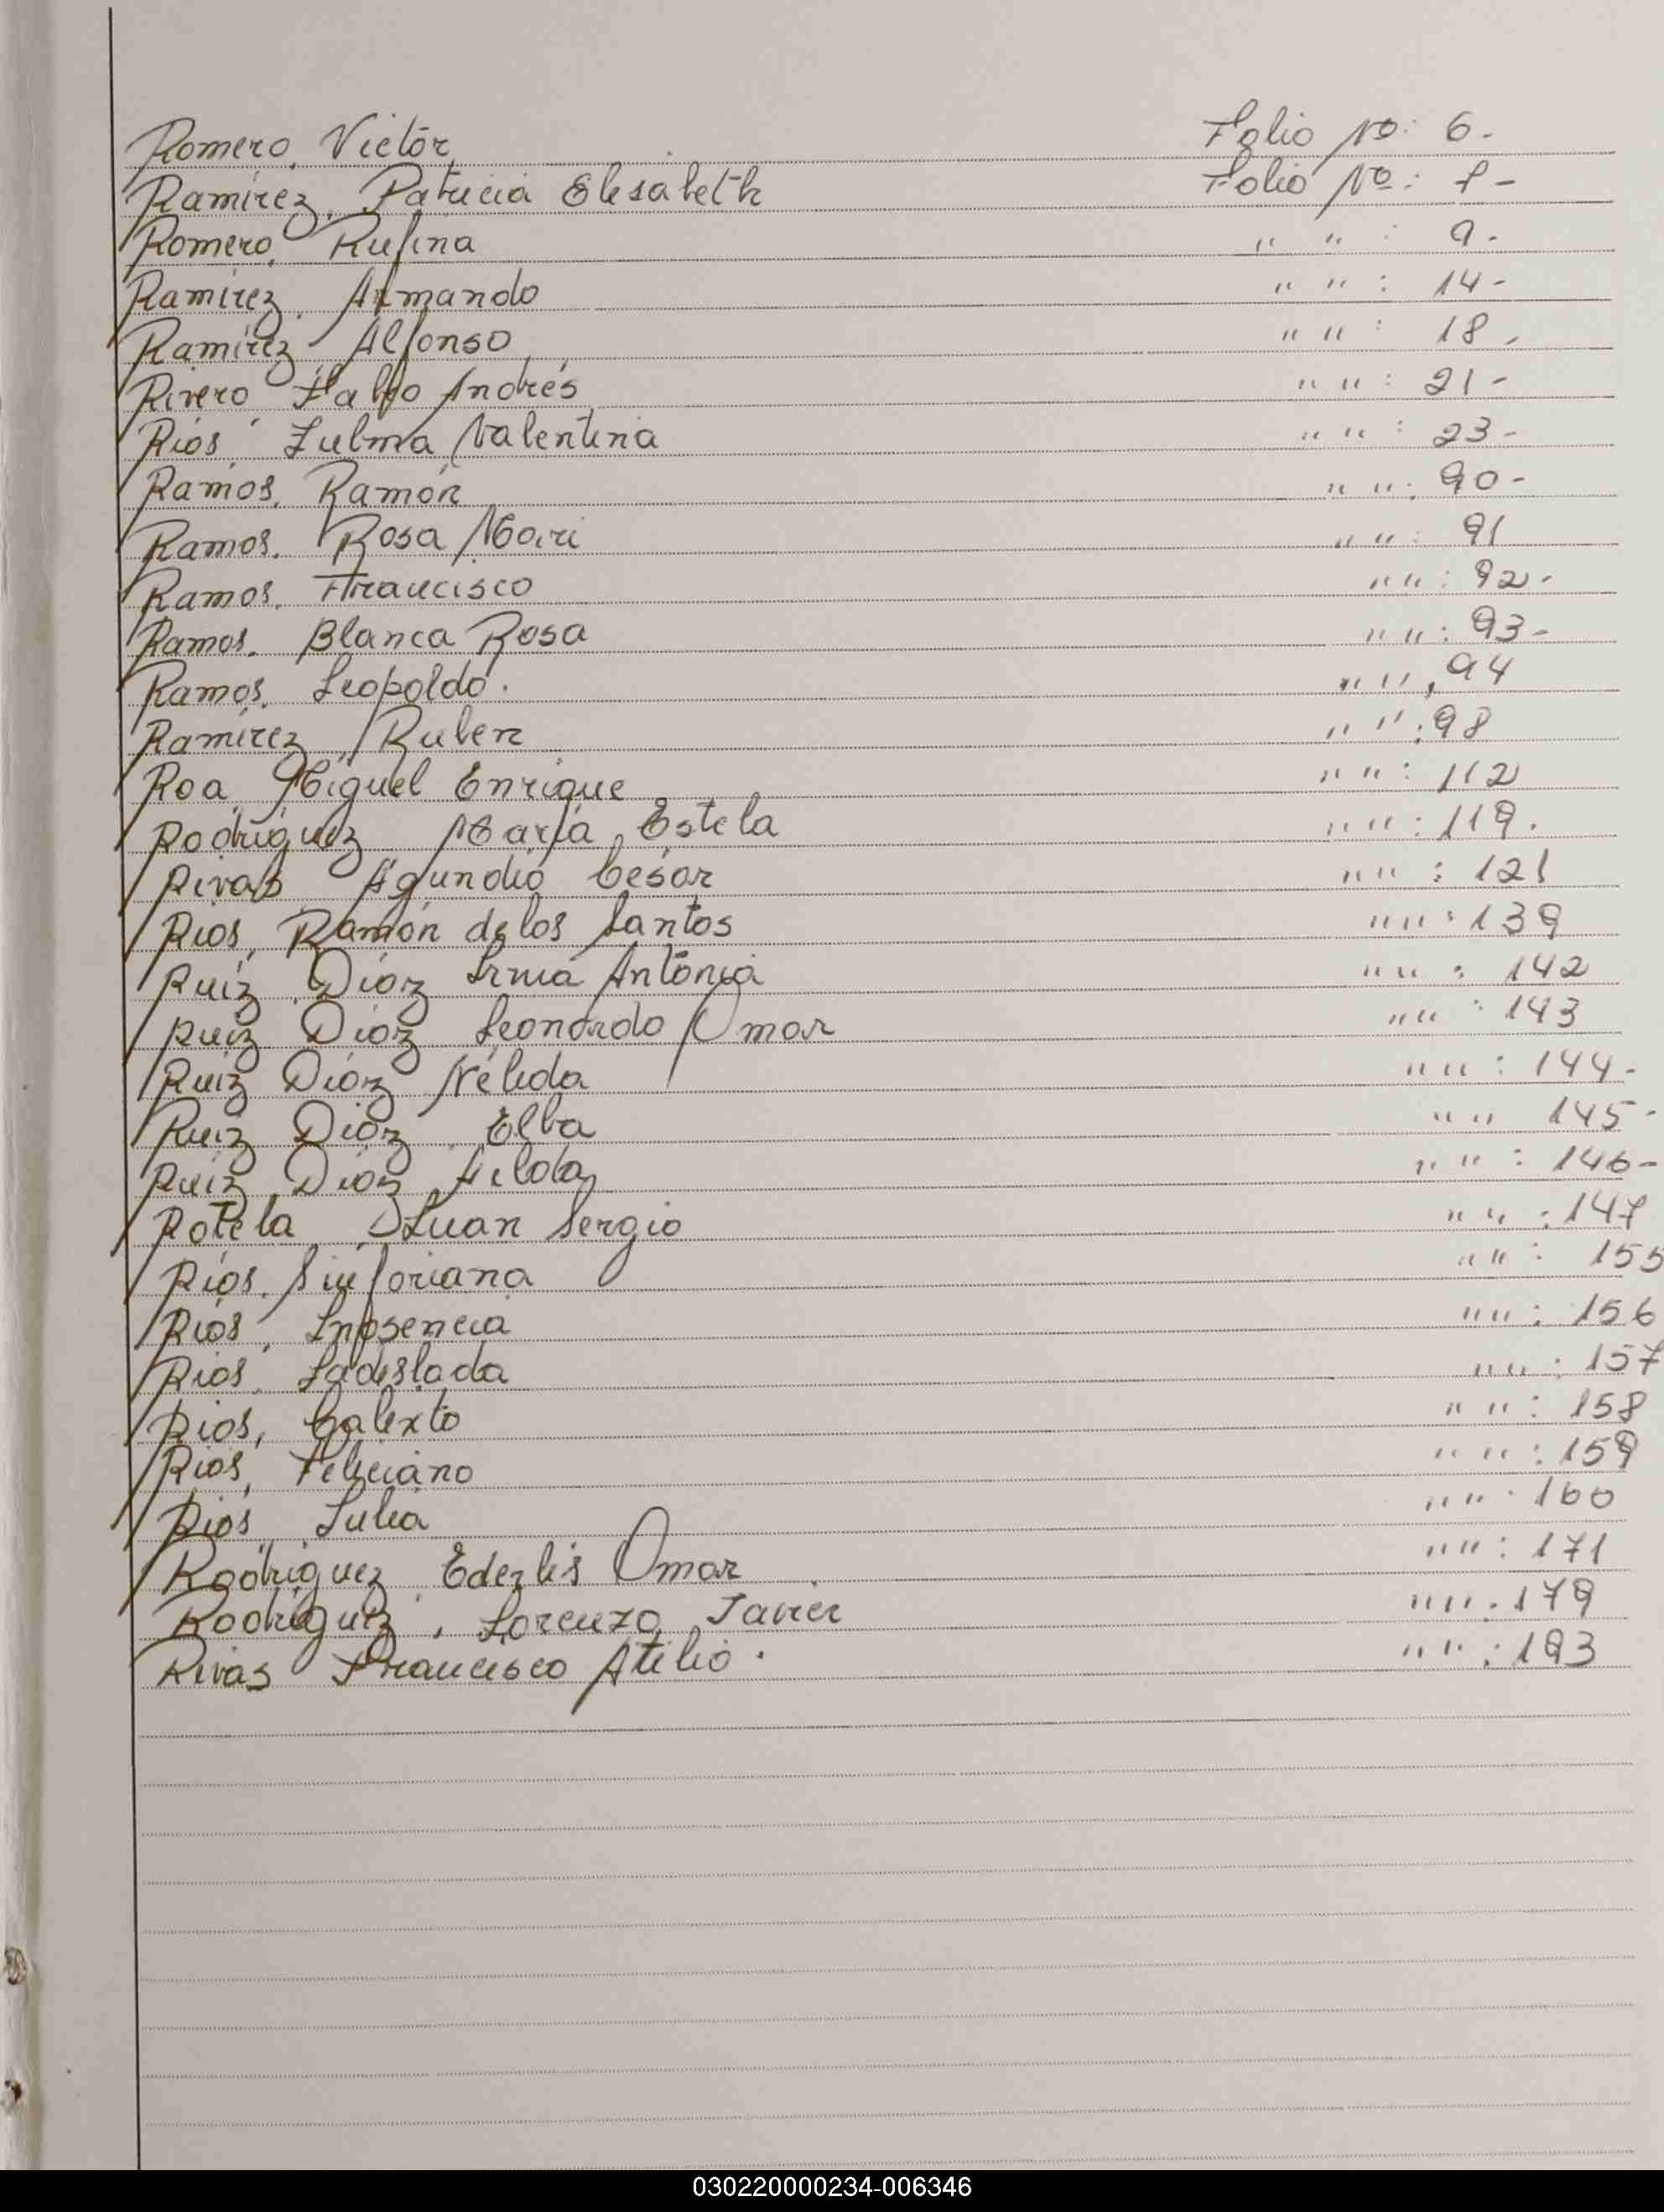 Romero, Victor, Folio Nº: 6.
Ramírez, Patricia Elisabeth Folio Nº: 7-
Romero, Rufina " " : 9.
Ramírez, Armando " " : 14-
Ramírez, Alfonso " " : 18.
Rivero Fabio Andrés " " : 21-
Ríos, Zulma Valentina " " : 23-
Ramos, Ramón " " : 90-
Ramos, Rosa Mari " " : 91
Ramos, Francisco " " : 92.
Ramos. Blanca Rosa " " : 93-
Ramos, Leopoldo. " " , 94
Ramírez, Ruben " " : 98
Roa, Miguel Enrique " " : 112
Rodríguez María Estela " " : 119.
Rivas Agundio César " " : 121
Ríos, Ramón de los Santos " " : 139
Ruíz Díaz Irma Antonia " " : 142
Ruíz Díaz Leonardo Omar " " : 143
Ruíz Díaz Nélida " " : 144-
Ruíz Díaz Elba " " 145-
Ruíz Díaz Hilda " " : 146-
Rotela Juan Sergio " " : 147
Ríos. Sinforiana " " : 155
Ríos, Inosencia " " : 156
Ríos Ladislada " " : 157
Ríos, Calixto " " : 158
Ríos, Feliciano " " : 159
Ríos Julia " " : 160
Rodríguez Ederlis Omar " " : 171
Rodríguez, Lorenzo Javier " " : 179
Rivas Francisco Atilio. " " : 193
030220000234-006346